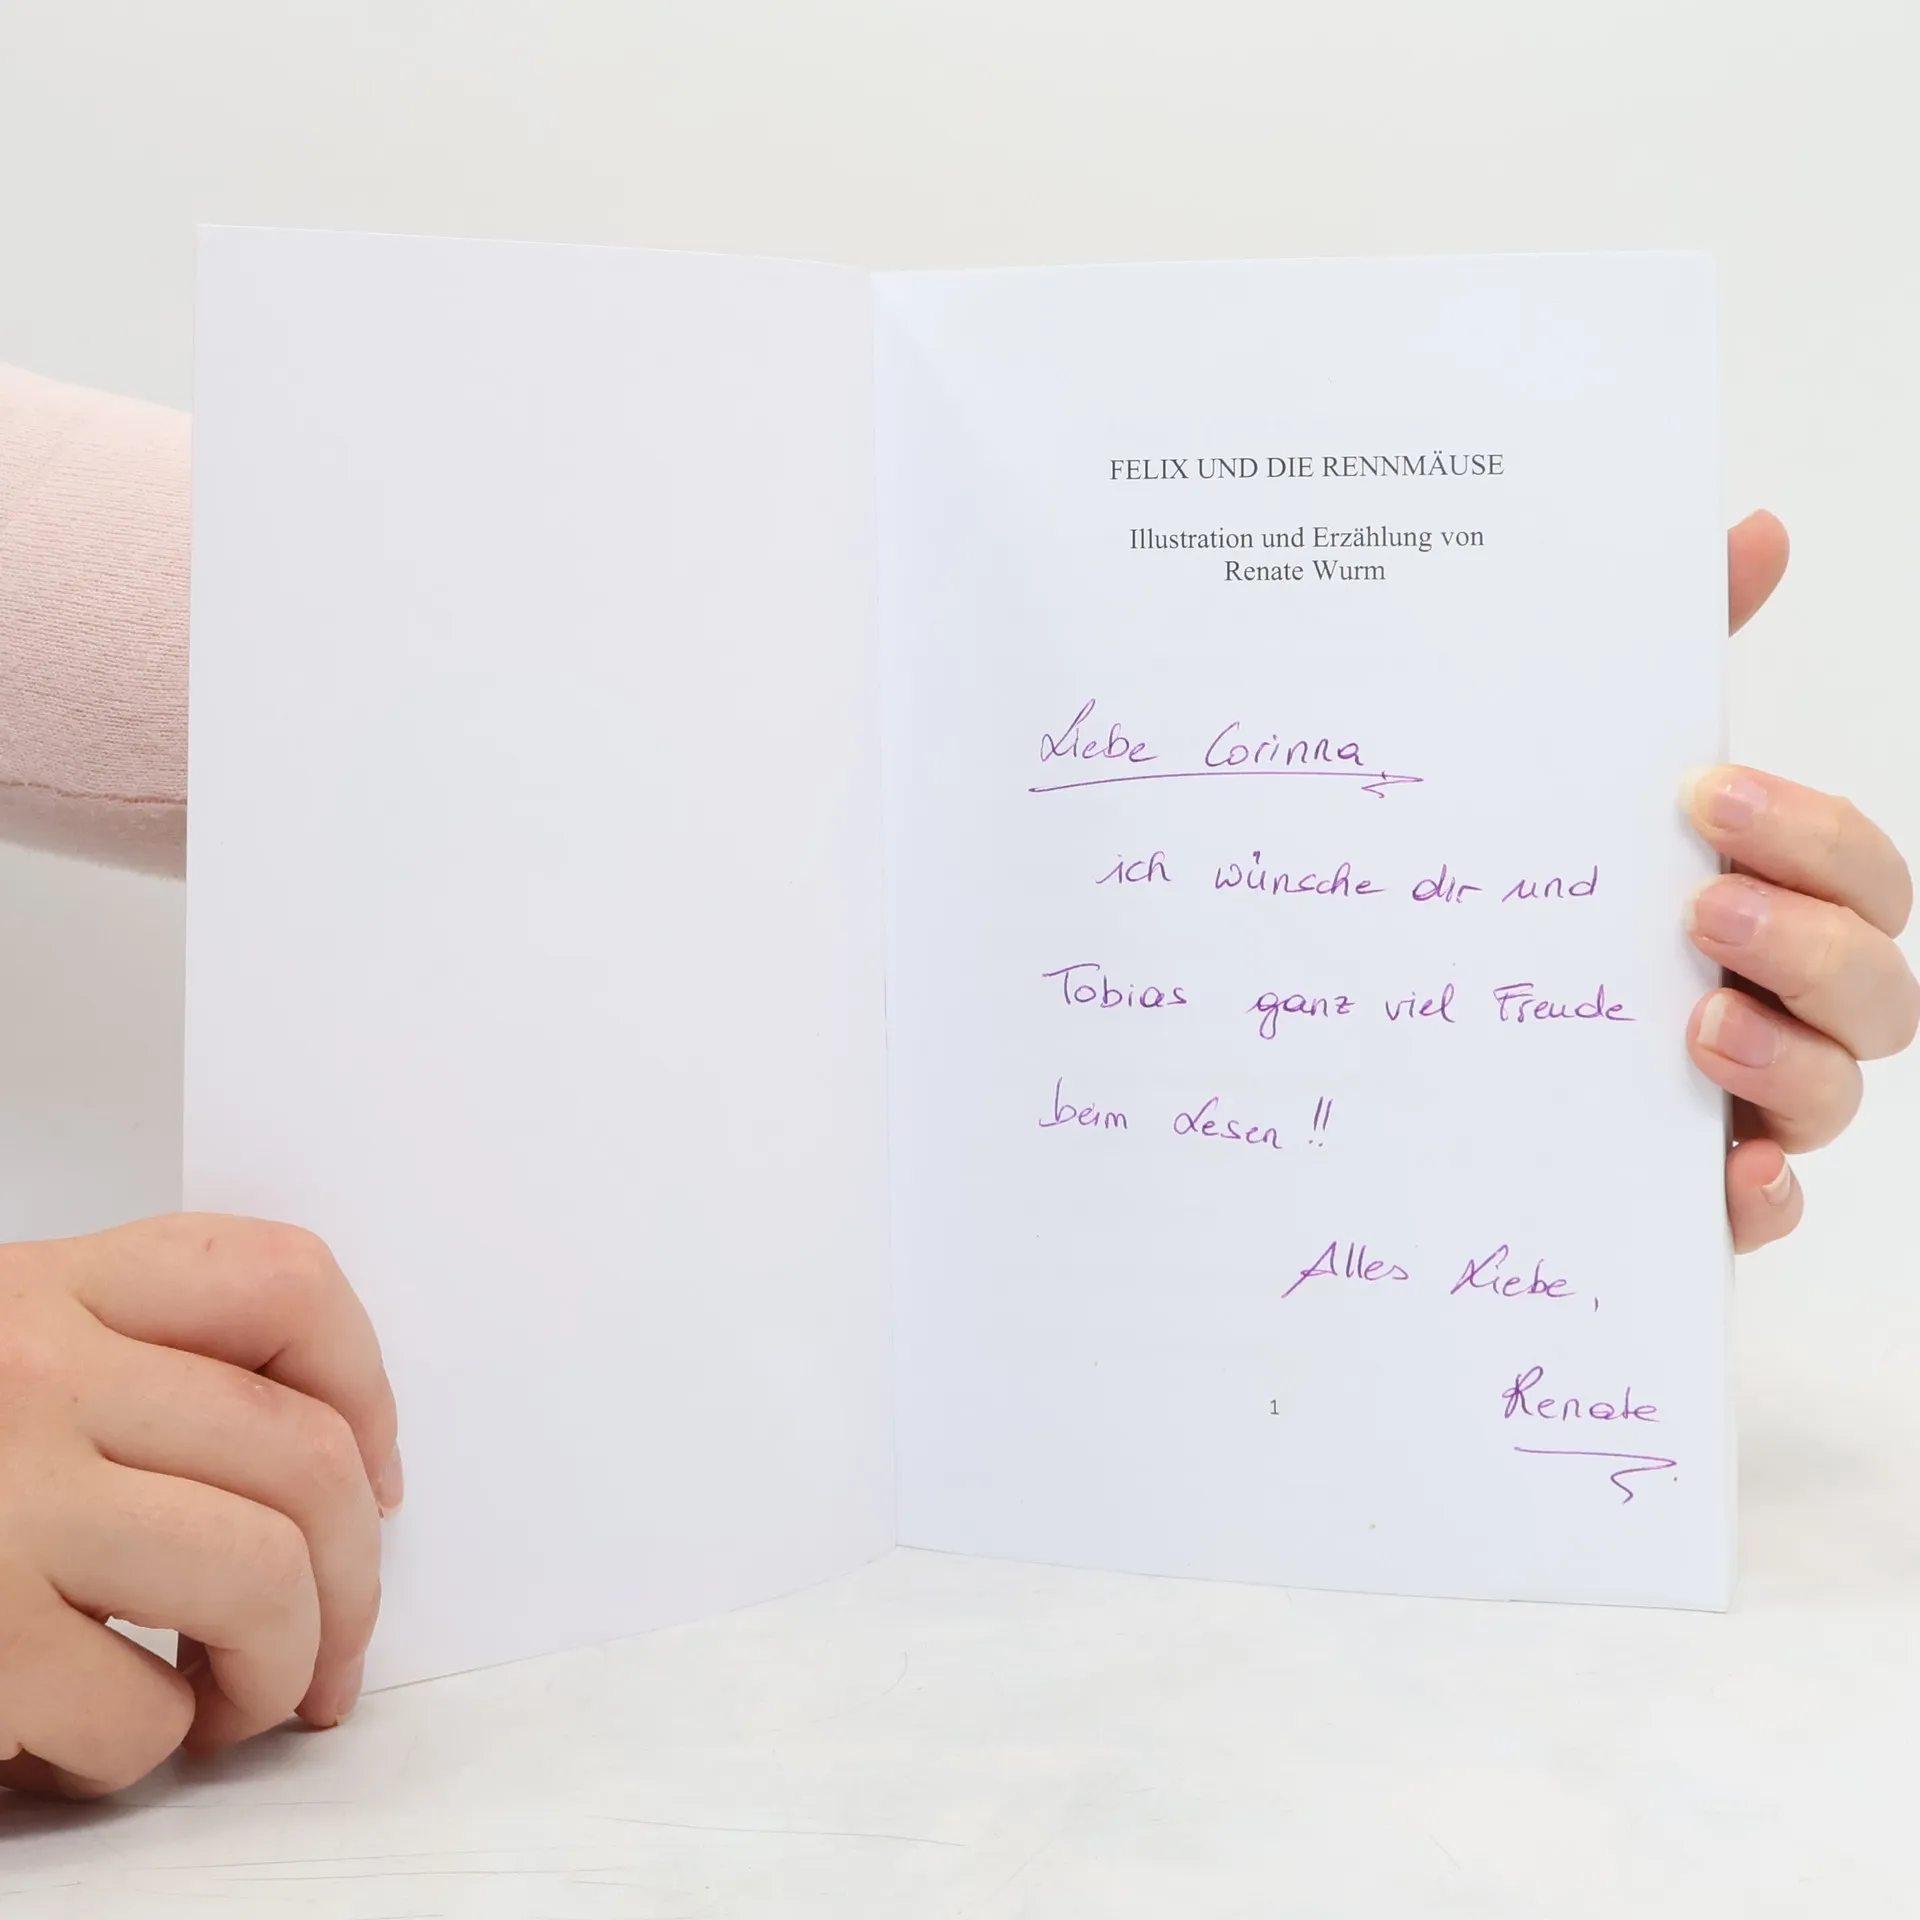 FELIX UND DIE RENNMÄUSE
Illustration und Erzählung von
Renate Wurm
Liebe Corinna,
ich wünsche dir und
Tobias ganz viel Freude
beim Lesen !!
Alles Liebe,
Renate
1